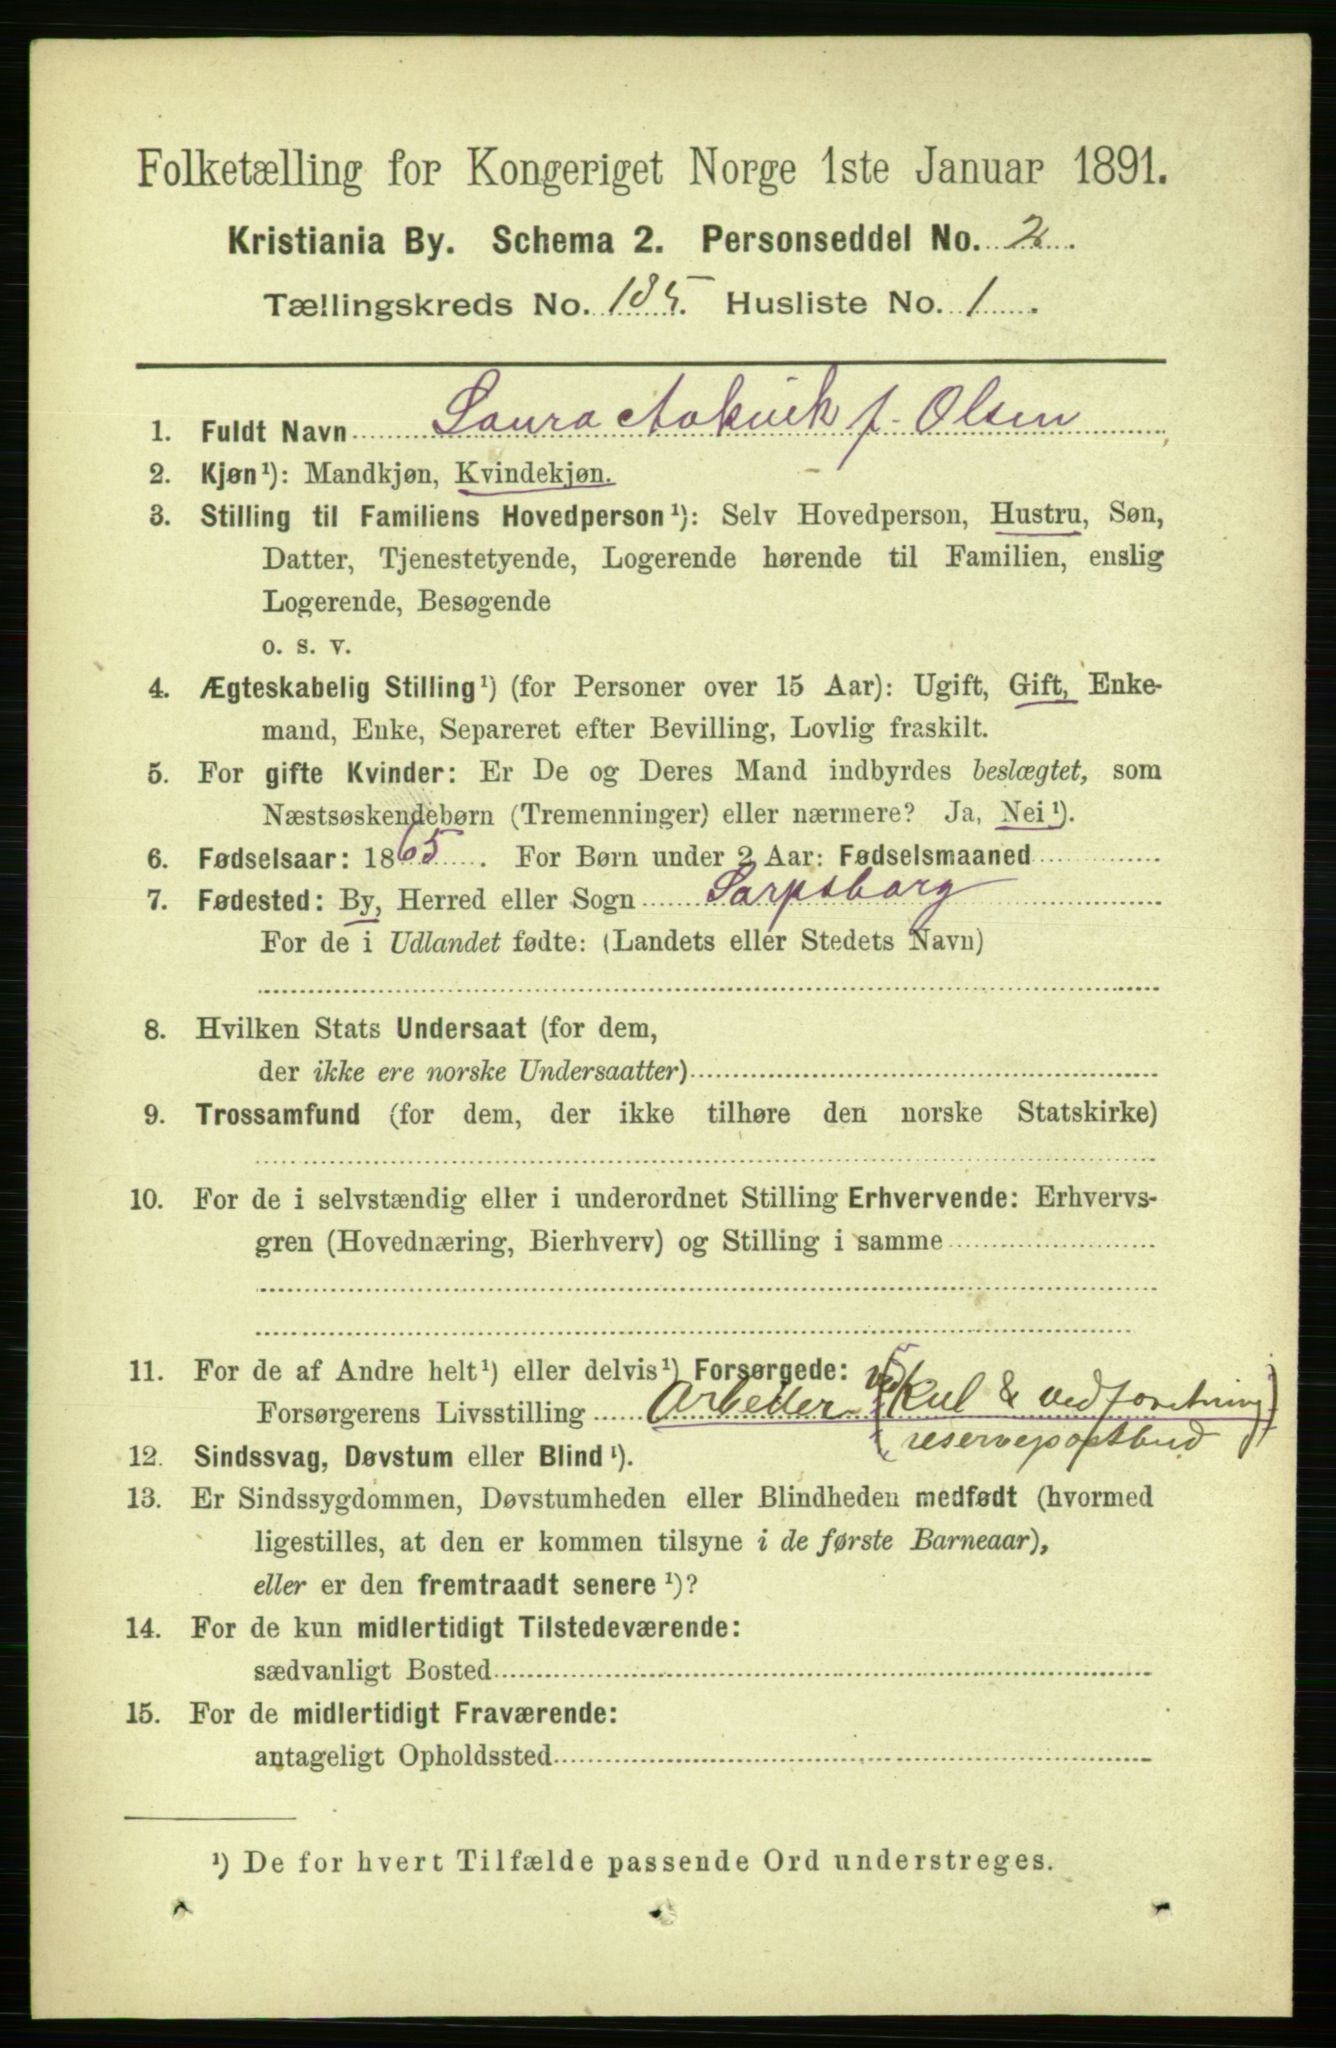 Folketælling for Kongeriget Norge 1ste Januar 1891.
Kristiania By. Schema 2. Personseddel No. 2.
Tællingskreds No. 185. Husliste No. 1.
1. Fuldt Navn Laura f. Olsen
2. Kjøn¹): Mandkjøn, Kvindekjøn.
3. Stilling til Familiens Hovedperson¹): Selv Hovedperson, Hustru, Søn,
Datter, Tjenestetyende, Logerende hørende til Familien, enslig
Logerende, Besøgende
o. s. v.
4. Ægteskabelig Stilling¹) (for Personer over 15 Aar): Ugift, Gift, Enke-
mand, Enke, Separeret efter Bevilling, Lovlig fraskilt.
5. For gifte Kvinder: Er De og Deres Mand indbyrdes beslægtet, som
Næstsøskendebørn (Tremenninger) eller nærmere? Ja, Nei¹).
6. Fødselsaar: 1865. For Børn under 2 Aar: Fødselsmaaned
7. Fødested: By, Herred eller Sogn Sarpsborg
For de i Udlandet fødte: (Landets eller Stedets Navn)
8. Hvilken Stats Undersaat (for dem,
der ikke ere norske Undersaatter)
9. Trossamfund (for dem, der ikke tilhøre den norske Statskirke)
10. For de i selvstændig eller i underordnet Stilling Erhvervende: Erhvervs-
gren (Hovednæring, Bierhverv) og Stilling i samme
11. For de af Andre helt¹) eller delvis¹) Forsørgede:
Forsørgerens Livsstilling Arbeider ved (Kul & vedforretning)
(reservepostbud)
12. Sindssvag, Døvstum eller Blind¹).
13. Er Sindssygdommen, Døvstumheden eller Blindheden medfødt (hvormed
ligestilles, at den er kommen tilsyne i de første Barneaar),
eller er den fremtraadt senere¹)?
14. For de kun midlertidigt Tilstedeværende:
sædvanligt Bosted
15. For de midlertidigt Fraværende:
antageligt Opholdssted
¹) De for hvert Tilfælde passende Ord understreges.